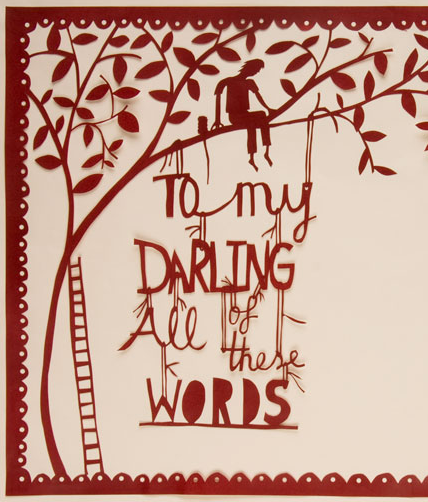 To my
DARLING
All of
these
WORDS